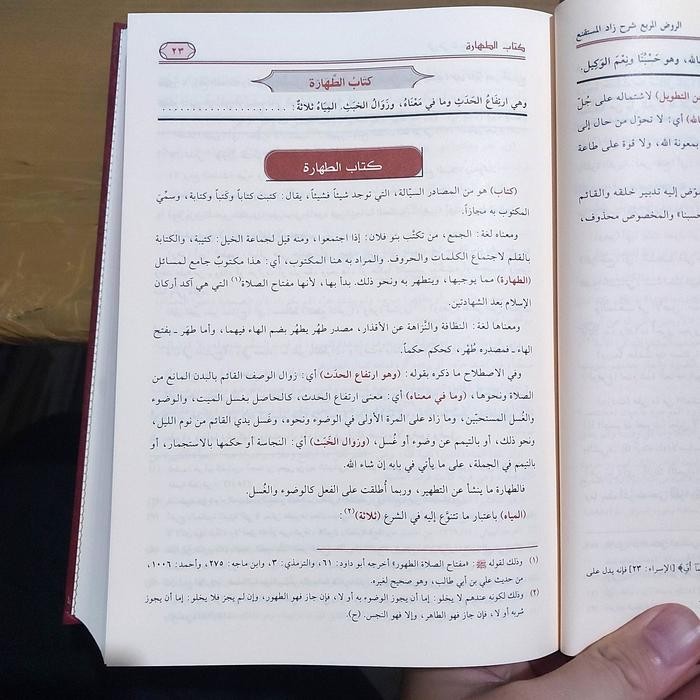 كتاب الطهارة
٢٣
كتابُ الطَّهَارَة
وهي ارتفاعُ الحَدَثِ وما في مَعْنَاهُ، وزَوَالُ الخبَثِ. المِيَاهُ ثلاثةٌ:
كتاب الطهارة
(كتاب) هو من المصادر السيّالة، التي توجد شيئاً فشيئاً، يقال: كتبت كتاباً وكَتباً وكتابة، وسمِّيَ
المكتوب به مجازاً.
ومعناه لغة: الجمع، من تكتَّب بنو فلان: إذا اجتمعوا، ومنه قيل لجماعة الخيل: كتيبة، والكتابة
بالقلم لاجتماع الكلمات والحروف. والمراد به هنا المكتوب، أي: هذا مكتوبٌ جامع لمسائل
(الطهارة) مما يوجبها، ويتطهر به ونحو ذلك. بدأ بها، لأنها مفتاح الصلاة(١) التي هي آكد أركان
الإسلام بعد الشهادتين.
ومعناها لغة: النظافة والنَّزاهة عن الأقذار، مصدر طهُر يطهُر بضم الهاء فيهما، وأما طهَر ـ بفتح
الهاء ـ فمصدره طُهْر، كحكم حكماً.
وفي الاصطلاح ما ذكره بقوله: (وهو ارتفاع الحدَث) أي: زوال الوصف القائم بالبدن المانع من
الصلاة ونحوها، (وما في معناه) أي: معنى ارتفاع الحدث، كالحاصل بغسل الميت، والوضوء
والغُسل المستحبّين، وما زاد على المرة الأولى في الوضوء ونحوه، وغَسل يدي القائم من نوم الليل،
ونحو ذلك، أو بالتيمم عن وضوء أو غُسل، (وزوال الخَبَث) أي: النجاسة أو حكمها بالاستجمار، أو
بالتيمم في الجملة، على ما يأتي في بابه إن شاء الله.
فالطهارة ما ينشأ عن التطهير، وربما أُطلقت على الفعل كالوضوء والغُسل.
(المياه) باعتبار ما تتنوَّع إليه في الشرع (ثلاثة)(٢):
(١) وذلك لقوله ﷺ: «مفتاح الصلاة الطهور» أخرجه أبو داود: ٦١، والترمذي: ٣، وابن ماجه: ٢٧٥، وأحمد: ١٠٠٦،
من حديث علي بن أبي طالب، وهو صحيح لغيره.
(٢) وذلك لكونه عندهم لا يخلو: إما أن يجوز الوضوء به أو لا، فإن جاز فهو الطهور، وإن لم يجز فلا يخلو: إما أن يجوز
شربه أو لا، فإن جاز فهو الطاهر، وإلا فهو النجس. (ح).
الروض المربع شرح زاد المستقنع
الله، وهو حَسْبُنَا ونِعْمَ الوَكِيل.
التطويل) لاشتماله على جُلّ
أي: لا تحوّل من حال إلى
بمعونة الله، ولا قوة على طاعة
إليه تدبير خلقه والقائم
والمخصوص محذوف،
[الإسراء: ٢٣] فإنه يدل على